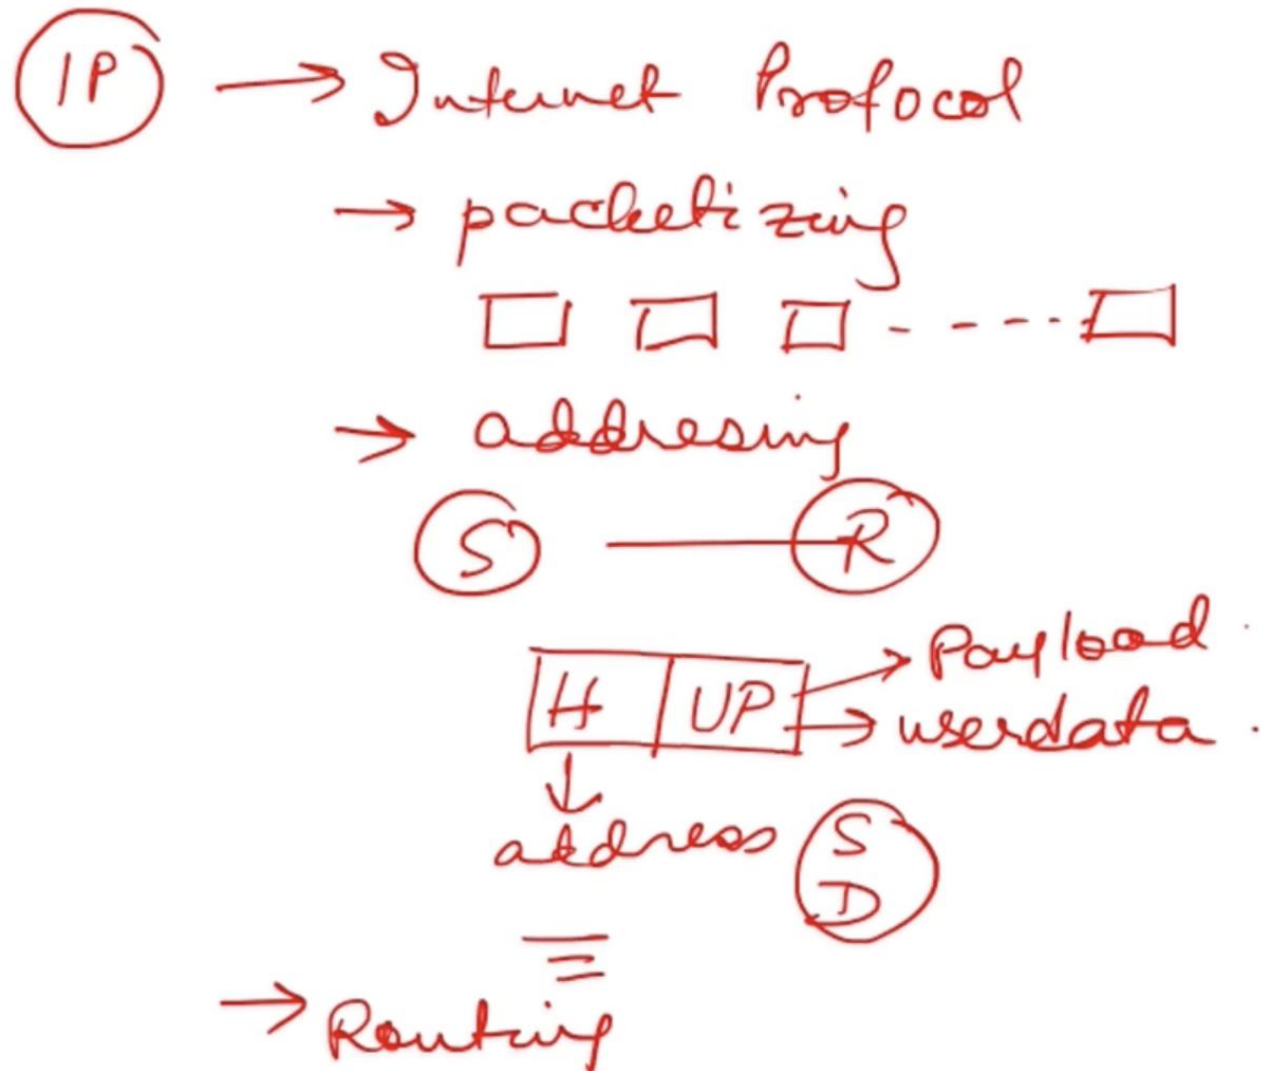 IP → Internet Protocol
→ packetizing
→ addresing
S R
H UP → Payload
→ userdata
address S
D
→ Routing